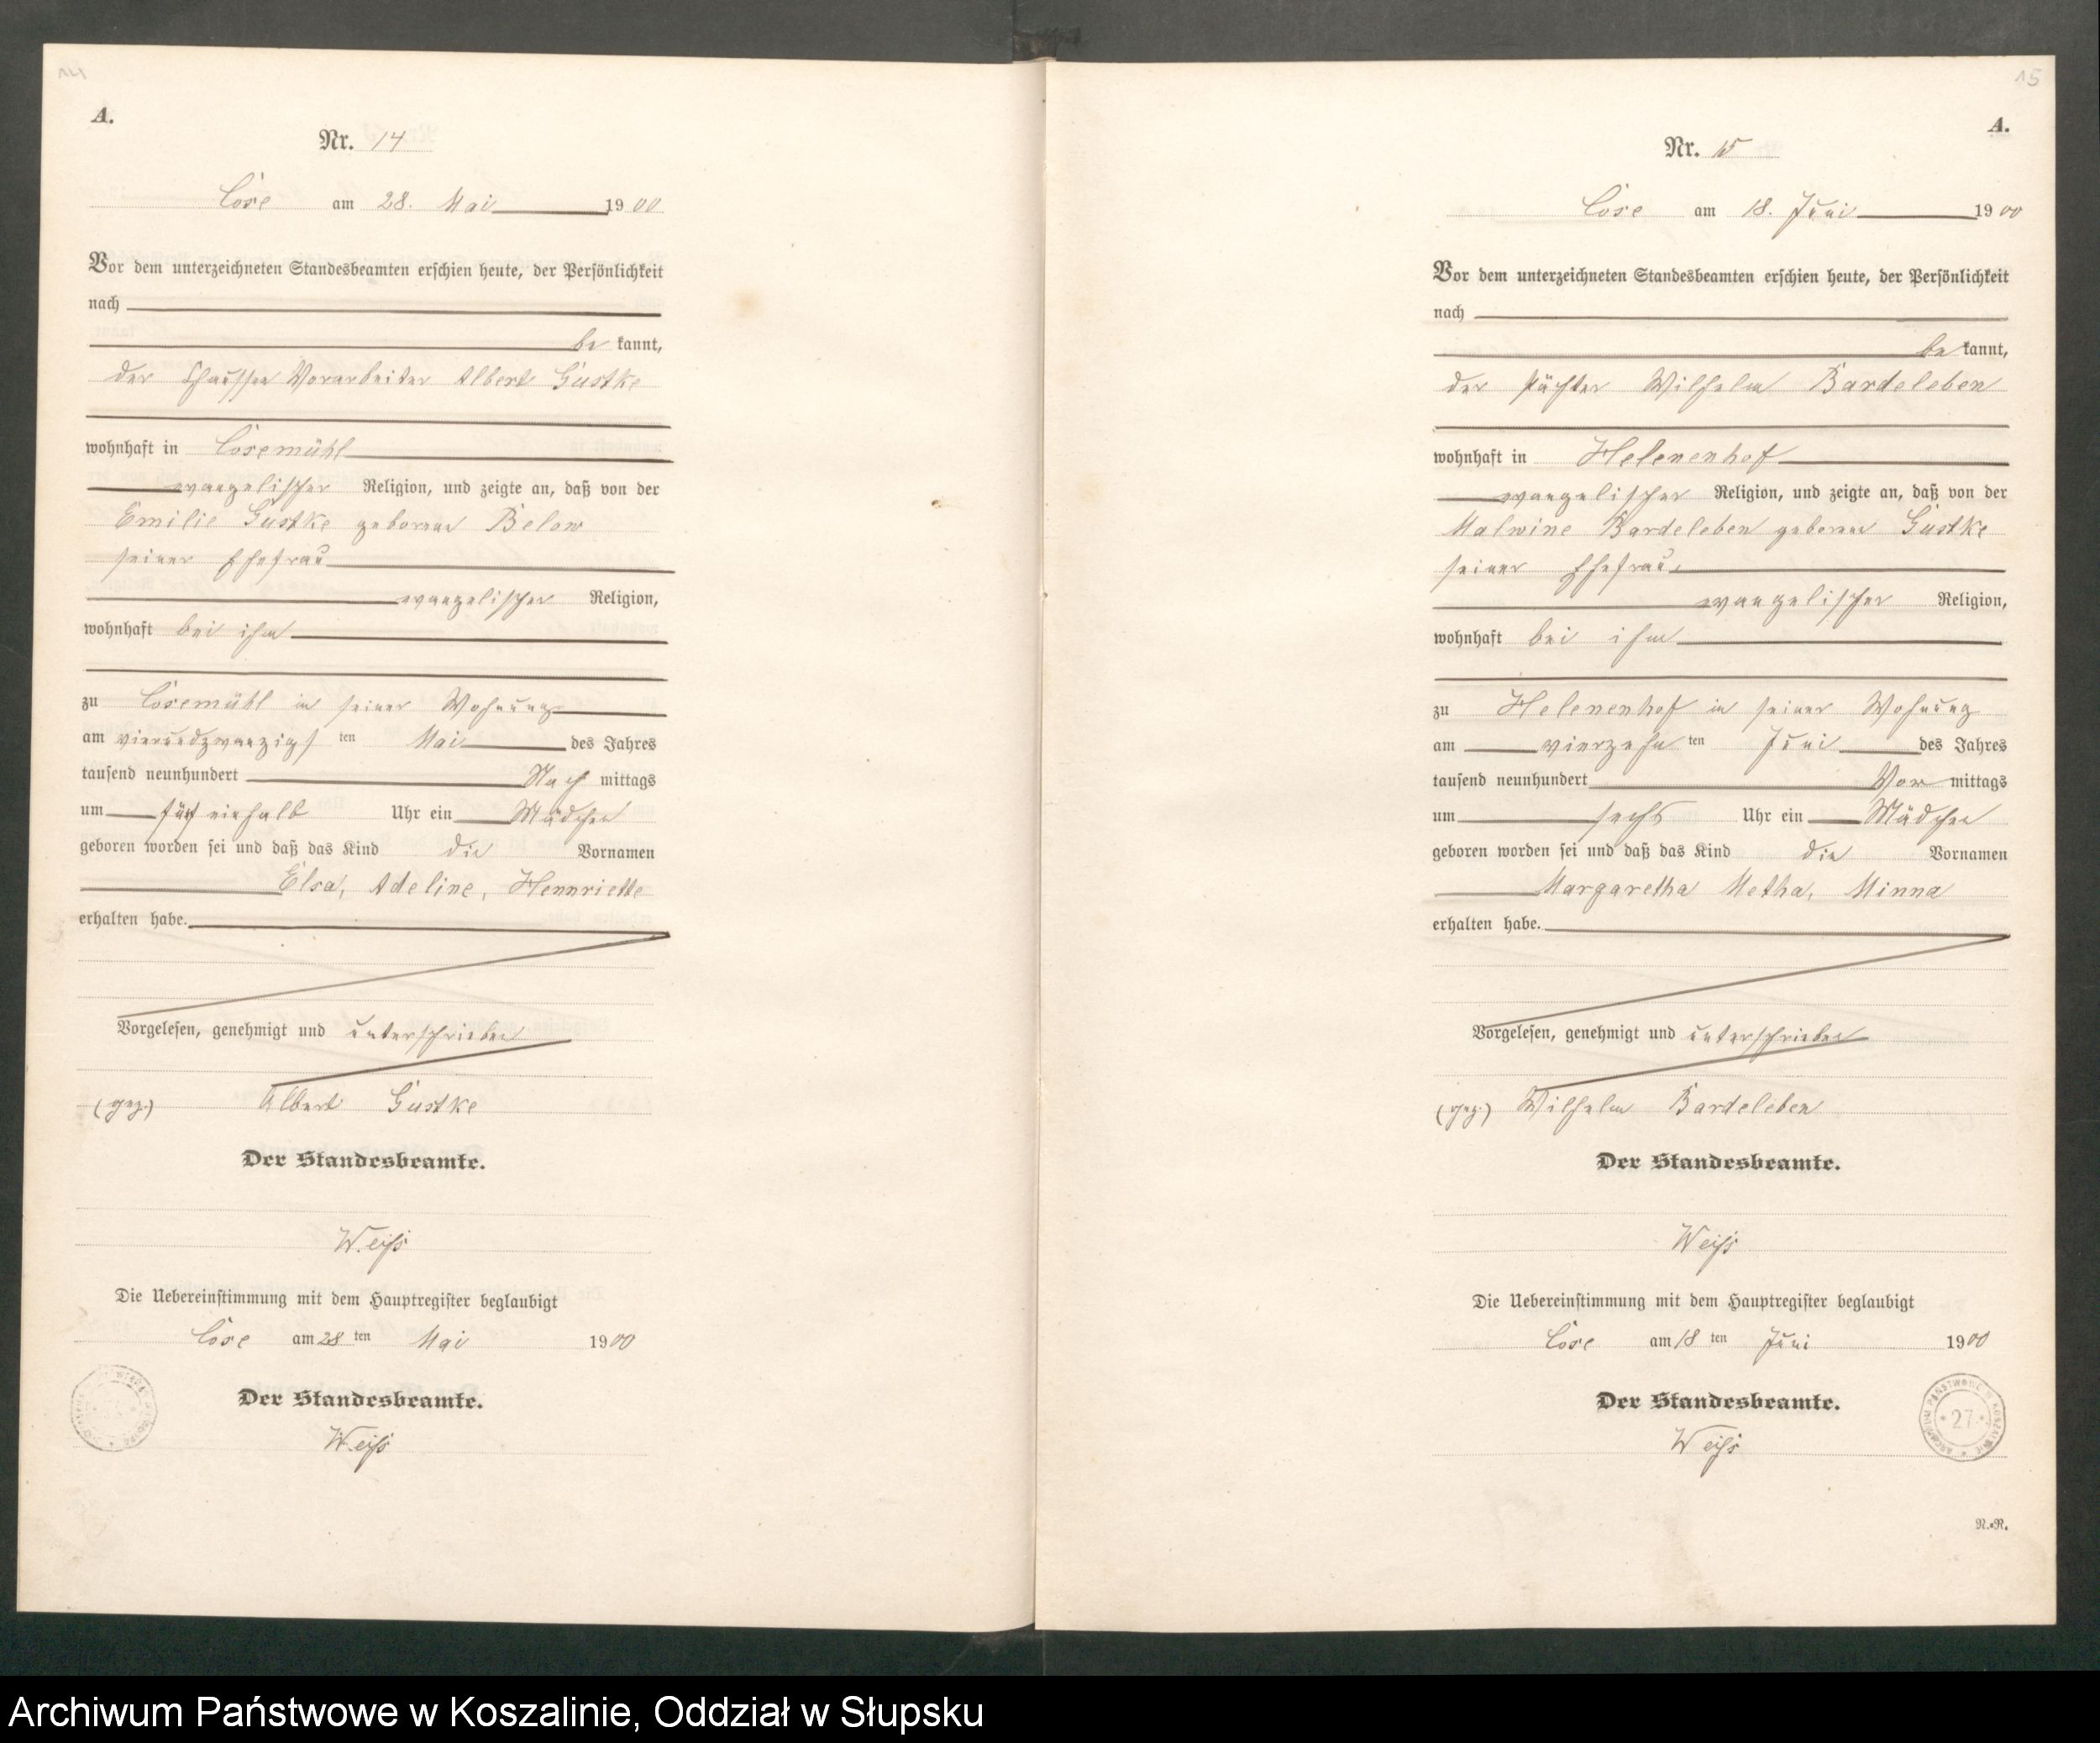 14
A.
Nr. 14
Cose am 28. Mai 1900
Vor dem unterzeichneten Standesbeamten erschien heute, der Persönlichkeit
nach
be kannt,
der Chaussee Vorarbeiter Albert Gustke
wohnhaft in Cosemühl
evangelischer Religion, und zeigte an, daß von der
Emilie Gustke geborene Below
seiner Ehefrau
evangelischer Religion,
wohnhaft bei ihm
zu Cosemühl in seiner Wohnung
am vierundzwanzigsten Mai des Jahres
tausend neunhundert Nach mittags
um fünf einhalb Uhr ein Mädchen
geboren worden sei und daß das Kind die Vornamen
Elsa, Adeline, Hennriette
erhalten habe.
Vorgelesen, genehmigt und unterschrieben
(gez.) Albert Gustke
Der Standesbeamte.
Weiß
Die Uebereinstimmung mit dem Hauptregister beglaubigt
Cose am 28 ten Mai 1900
Der Standesbeamte.
Weiß
15
A.
Nr. 15
Cose am 18. Juni 1900
Vor dem unterzeichneten Standesbeamten erschien heute, der Persönlichkeit
nach
be kannt,
der Pächter Wilhelm Bardeleben
wohnhaft in Helenenhof
evangelischer Religion, und zeigte an, daß von der
Malwine Bardeleben geborene Gustke
seiner Ehefrau,
evangelischer Religion,
wohnhaft bei ihm
zu Helenenhof in seiner Wohnung
am vierzehn ten Juni des Jahres
tausend neunhundert Vor mittags
um sechs Uhr ein Mädchen
geboren worden sei und daß das Kind die Vornamen
Margaretha Metha, Minna
erhalten habe.
Vorgelesen, genehmigt und unterschrieben
(gez.) Wilhelm Bardeleben
Der Standesbeamte.
Weiß
Die Uebereinstimmung mit dem Hauptregister beglaubigt
Cose am 18 ten Juni 1900
Der Standesbeamte.
Weiß
ARCHIWUM PAŃSTWOWE W KOSZALINIE
27
R.=R.
Archiwum Państwowe w Koszalinie, Oddział w Słupsku